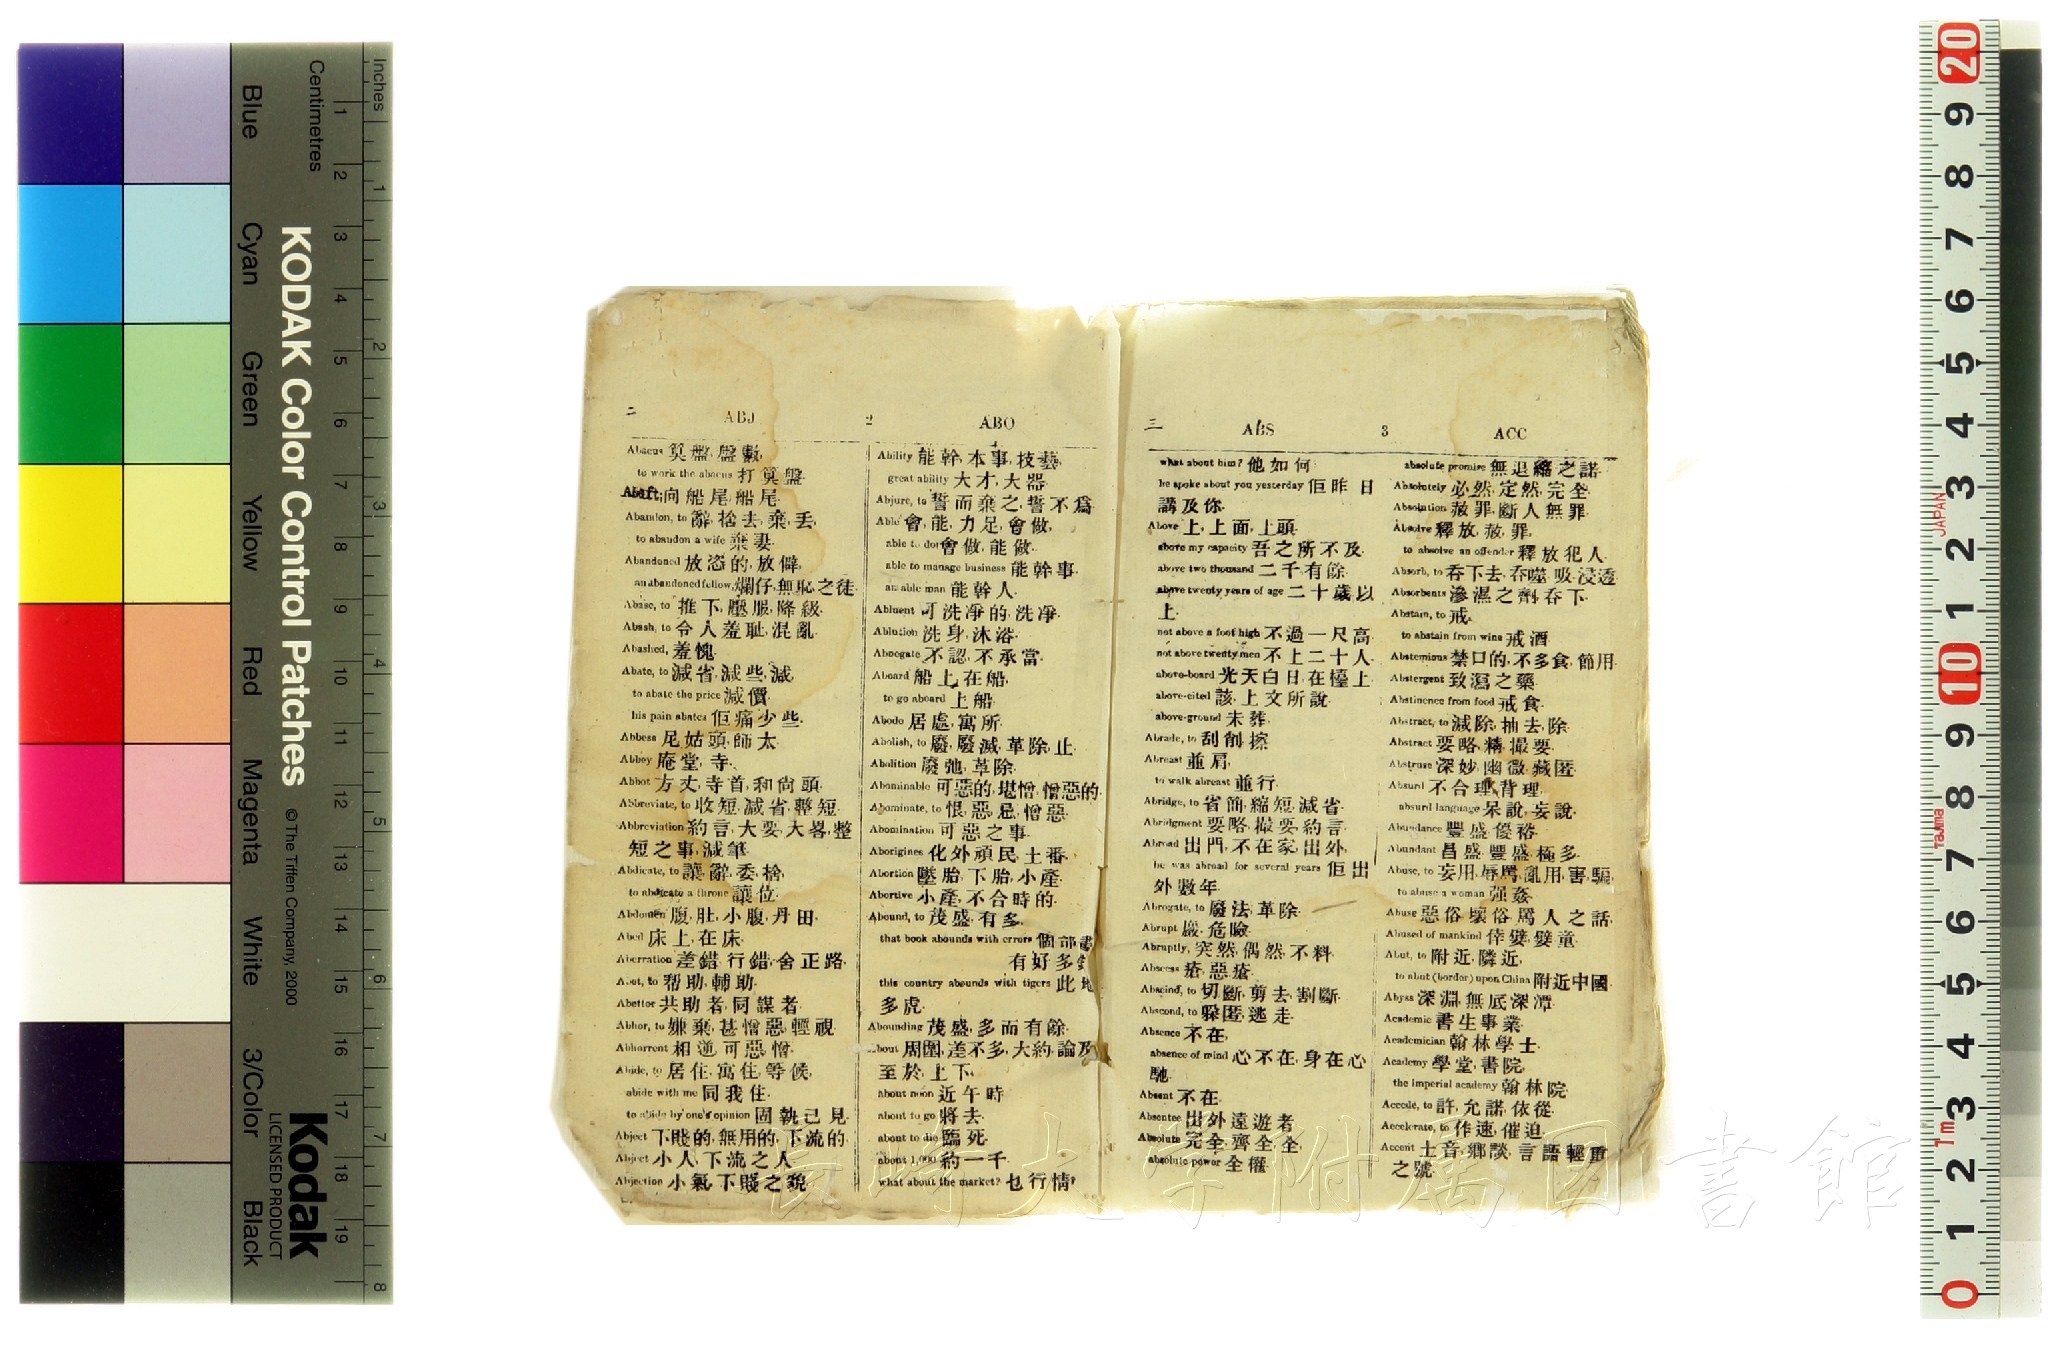 Inches
Centimetres
KODAK Color Control Patches
© The Tiffen Company, 2000
Kodak
LICENSED PRODUCT
Blue
Cyan
Green
Yellow
Red
Magenta
White
3/Color
Black
二 ABJ 2 ABO
Abacus 筭盤, 盤數,
to work the abacus 打筭盤.
Abaft, 向船尾, 船尾.
Abandon, to 辭, 捨去, 棄, 丢,
to abandon a wife 棄妻.
Abandoned 放恣的, 放僻,
an abandoned fellow, 爛仔, 無恥之徒.
Abase, to 推下, 壓服, 降級.
Abash, to 令人羞耻, 混亂.
Abashed, 羞愧.
Abate, to 減省, 減些, 減,
to abate the price 減價.
his pain abates 佢痛少些.
Abbess 尼姑頭, 師太.
Abbey 庵堂, 寺.
Abbot 方丈, 寺首, 和尙頭.
Abbreviate, to 收短, 減省, 整短.
Abbreviation 約言, 大要, 大畧, 整
短之事, 減筆.
Abdicate, to 讓, 辭, 委, 捨,
to abdicate a throne 讓位.
Abdomen 腹, 肚, 小腹, 丹田.
Abed 床上, 在床.
Aberration 差錯, 行錯, 舍正路.
Abet, to 帮助, 輔助.
Abettor 共助者, 同謀者.
Abhor, to 嫌棄, 甚憎惡, 輕視.
Abhorrent 相逆, 可惡, 憎.
Abide, to 居住, 寓住, 等候,
abide with me 同我住.
to abide by one's opinion 固執己見.
Abject 下賤的, 無用的, 下流的.
Abject 小人, 下流之人.
Abjection 小氣, 下賤之貌.
Ability 能幹, 本事, 技藝,
great ability 大才, 大器.
Abjure, to 誓而棄之, 誓不爲.
Able 會, 能, 力足, 會做,
able to do 會做, 能做.
able to manage business 能幹事.
an able man 能幹人.
Abluent 可洗凈的, 洗凈.
Ablution 洗身, 沐浴.
Abnegate 不認, 不承當.
Aboard 船上, 在船,
to go aboard 上船.
Abode 居處, 寓所.
Abolish, to 廢, 廢滅, 革除, 止.
Abolition 廢弛, 革除.
Abominable 可惡的, 堪憎, 憎惡的.
Abominate, to 恨, 惡, 忌, 憎惡.
Abomination 可惡之事.
Aborigines 化外頑民, 土番.
Abortion 墜胎, 下胎, 小產.
Abortive 小產, 不合時的.
Abound, to 茂盛, 有多.
that book abounds with errors 個部書
有好多
this country abounds with tigers 此地
多虎.
Abounding 茂盛, 多而有餘.
About 周圍, 差不多, 大約, 論及,
至於, 上下.
about noon 近午時.
about to go 將去.
about to die 臨死.
about 1,000 約一千.
what about the market? 乜行情?
三 ABS 3 ACC
what about him? 他如何.
he spoke about you yesterday 佢昨日
講及你.
Above 上, 上面, 上頭.
above my capacity 吾之所不及.
above two thousand 二千有餘.
above twenty years of age 二十歲以
上.
not above a foot high 不過一尺高.
not above twenty men 不上二十人.
above-board 光天白日, 在檯上.
above-cited 該, 上文所說.
above-ground 未葬.
Abrade, to 刮削, 擦.
Abreast 並肩,
to walk abreast 並行.
Abridge, to 省簡, 縮短, 減省.
Abridgment 要略, 撮要, 約言.
Abroad 出門, 不在家, 出外,
he was abroad for several years 佢出
外數年.
Abrogate, to 廢法, 革除.
Abrupt 嚴, 危險.
Abruptly, 突然, 偶然, 不料.
Abscess 瘡, 惡瘡.
Abscind, to 切斷, 剪去, 割斷.
Abscond, to 躱匿, 逃走.
Absence 不在,
absence of mind 心不在, 身在心
馳.
Absent 不在.
Absentee 出外遠遊者.
Absolute 完全, 齊全, 全.
absolute power 全權.
absolute promise 無退縮之諾.
Absolutely 必然, 定然, 完全.
Absolution 赦罪, 斷人無罪.
Absolve 釋放, 赦罪,
to absolve an offender 釋放犯人.
Absorb, to 吞下去, 吞噬, 吸, 浸透.
Absorbents 滲濕之劑, 吞下.
Abstain, to 戒,
to abstain from wine 戒酒.
Abstemious 禁口的, 不多食, 節用.
Abstergent 致瀉之藥.
Abstinence from food 戒食.
Abstract, to 減除, 抽去, 除.
Abstract 要略, 精, 撮要.
Abstruse 深妙, 幽微, 藏匿.
Absurd 不合理, 背理,
absurd language 呆說, 妄說.
Abundance 豐盛, 優裕.
Abundant 昌盛, 豐盛, 極多.
Abuse, to 妄用, 辱罵, 亂用, 害, 騙,
to abuse a woman 强姦.
Abuse 惡俗, 壞俗, 罵人之話.
Abused of mankind 倖嬖, 嬖童.
Abut, to 附近, 隣近,
to abut (border) upon China 附近中國.
Abyss 深淵, 無底深潭.
Academic 書生事業.
Academician 翰林學士.
Academy 學堂, 書院,
the imperial academy 翰林院.
Accede, to 許, 允諾, 依從.
Accelerate, to 作速, 催迫.
Accent 土音, 鄉談, 言語輕重
之號.
JAPAN
Tajima
1m
長崎大学附属図書館